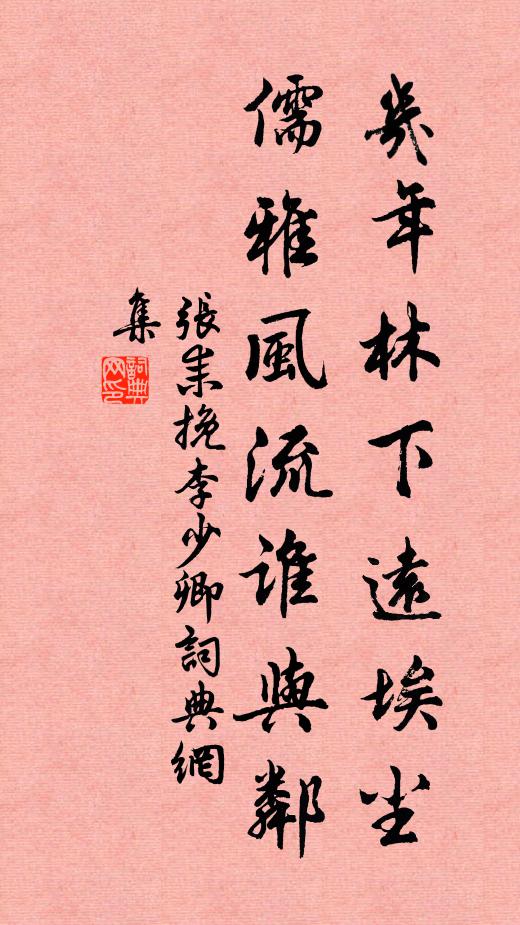 幾年林下遠埃尘
儒雅風流誰與鄰
張耒挽李少卿詞典網
集
詞典
网印